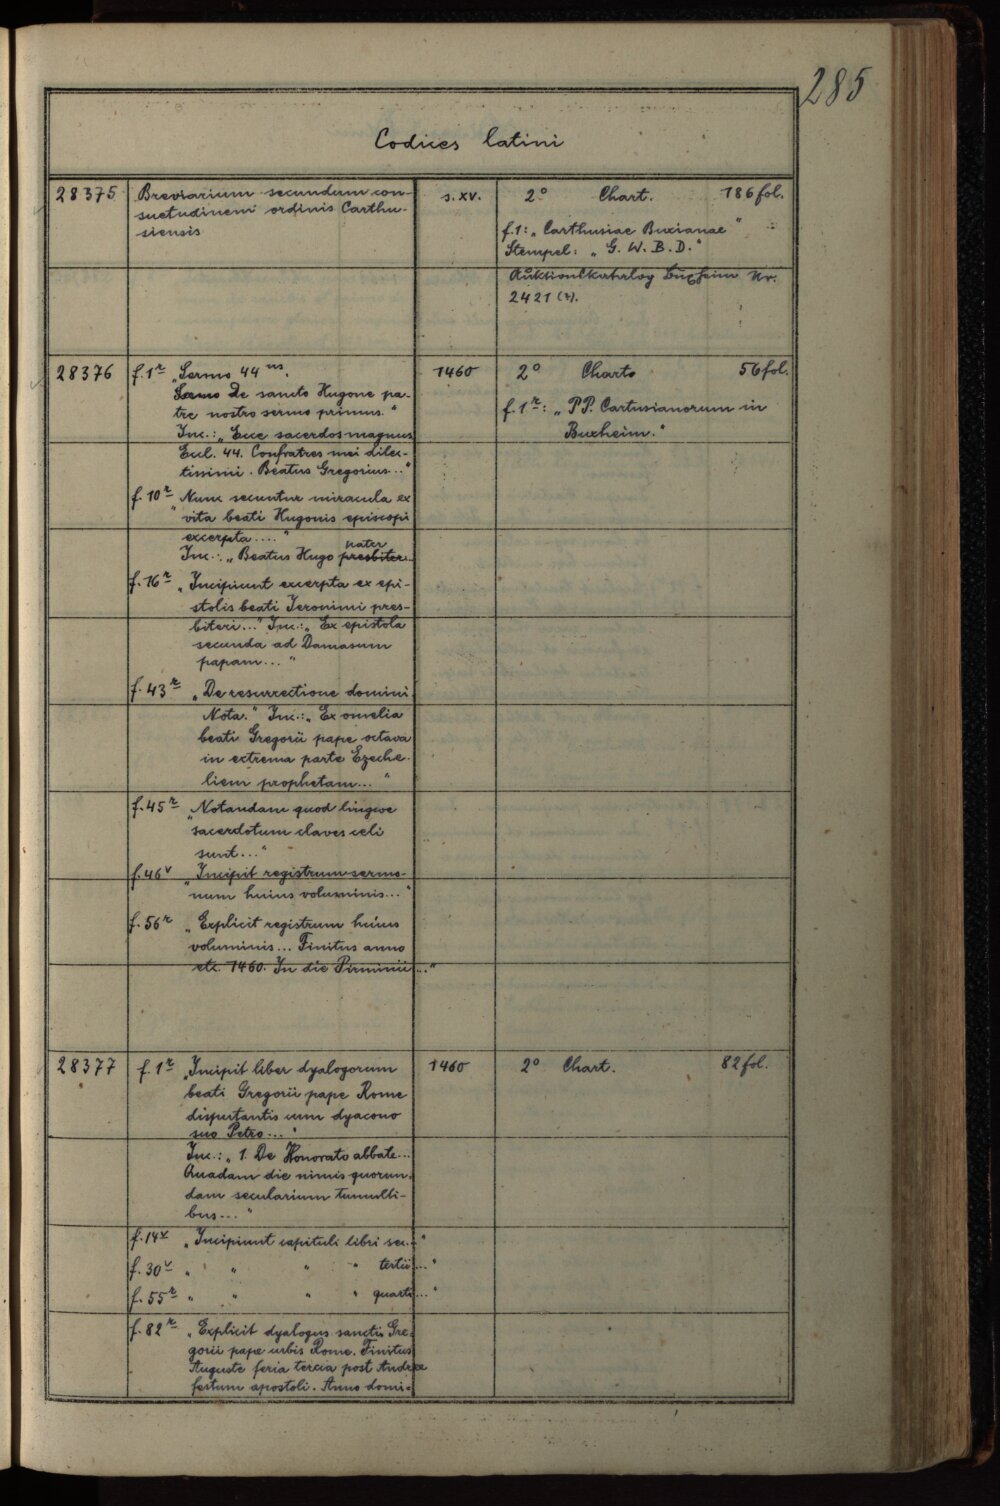 285
Codices latini
28375 Breviarium secundum con- s. XV. 2° Chart. 186 fol.
suetudinem ordinis Carthu-
siensis
f. 1: „Carthusiae Buxianae"
Stempel: „G. W. B. D."
Auktionskatalog Buxheim Nr.
2421 (?).
28376 f. 1r „Sermo 44us. 1460 2° Charto 56 fol.
Sermo De sancto Hugone pa-
tre nostro sermo primus."
Inc.: „Ecce sacerdos magnus
Eccl. 44. Confratres mei dilec-
tissimi. Beatus Gregorius..."
f. 1r: „PP. Cartusianorum in
Buxheim."
f. 10r „Nunc secuntur miracula ex
vita beati Hugonis episcopi
excerpta...."
pater
Inc.: „Beatus Hugo presbiter..
f. 16r „Incipiunt excerpta ex epi-
stolis beati Jeronimi pres-
biteri..." Inc.: „Ex epistola
secunda ad Damasum
papam..."
f. 43r „De resurrectione domini
Nota." Inc.: „Ex omelia
beati Gregorii pape octava
in extrema parte Ezeche-
liem prophetam..."
f. 45r „Notandam quod lingwe
sacerdotum claves celi
sunt..."
f. 46v „Incipit registrum sermo-
num huius voluminis..."
f. 56r „Explicit registrum huius
voluminis... Finitus anno
etc. 1460. In die Pirminii..."
28377 f. 1r „Incipit liber dyalogorum 1460 2° Chart. 82 fol.
beati Gregorii pape Rome
disputantis cum dyacono
suo Petro..."
Inc.: „1. De Honorato abbate...
Quadam die nimis quorun-
dam secularium tumulti-
bus..."
f. 14v „Incipiunt capituli libri sec.."
f. 30v „ „ „ „ tertii..."
f. 55r „ „ „ „ quarti..."
f. 82r „Explicit dyalogus sancti Gre-
gorii pape urbis Rome. Finitus
Auguste feria tercia post Andree
festum apostoli. Anno domi-